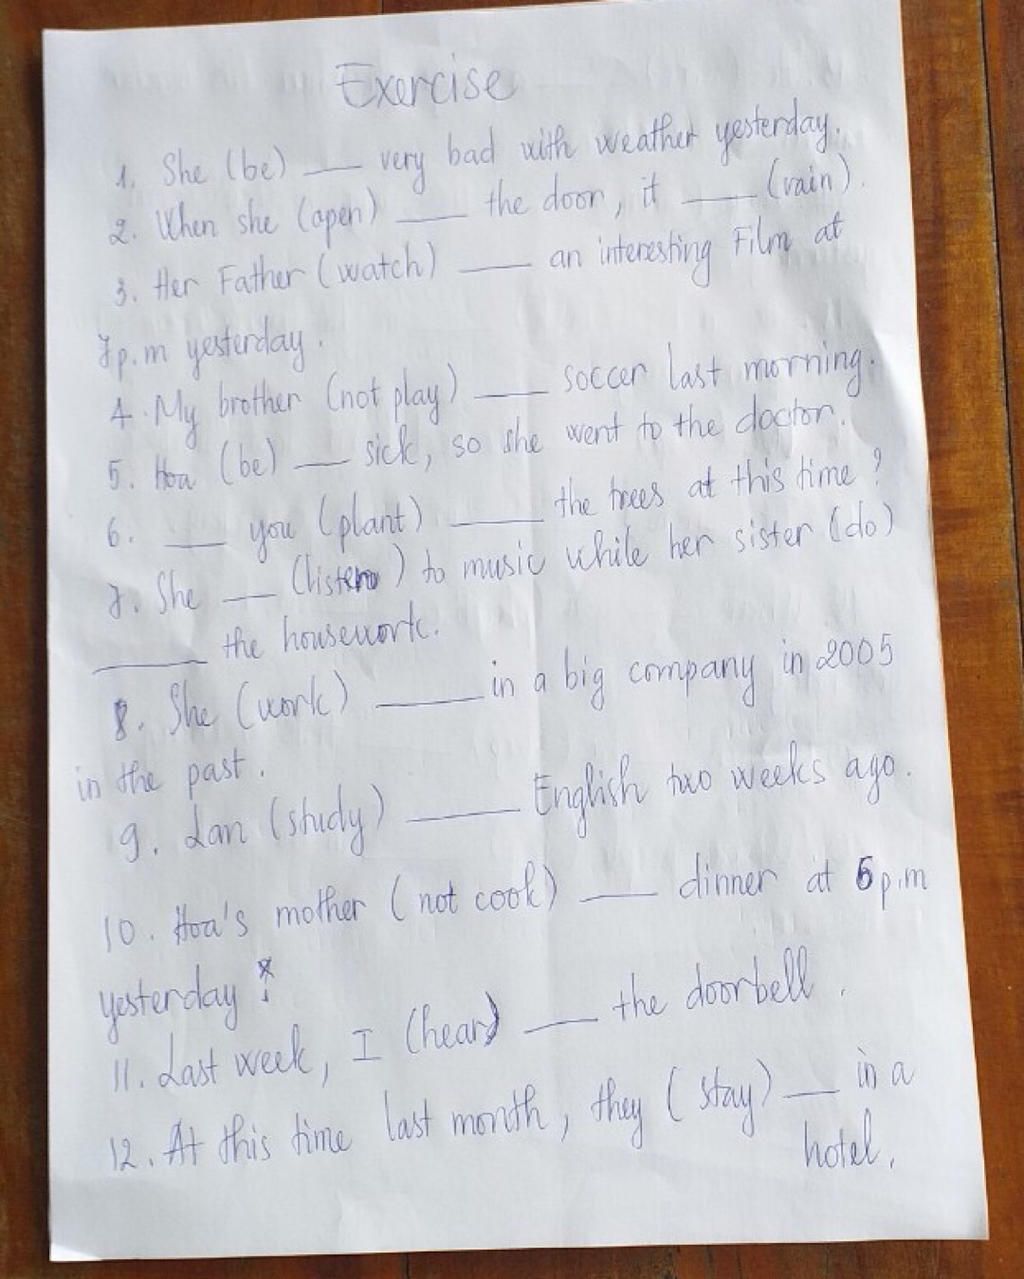 Exercise
1. She (be) ___ very bad with weather yesterday.
2. When she (open) ___ the door, it ___ (rain).
3. Her Father (watch) ___ an interesting Film at
7p.m yesterday.
4. My brother (not play) ___ soccer last morning.
5. Hoa (be) ___ sick, so she went to the doctor.
6. ___ you (plant) ___ the trees at this time?
7. She ___ (listen) to music while her sister (do)
___ the housework.
8. She (work) ___ in a big company in 2005
in the past.
9. Lan (study) ___ English two weeks ago.
10. Hoa's mother (not cook) ___ dinner at 6 p.m
yesterday
11. Last week, I (hear) ___ the doorbell.
12. At this time last month, they (stay) ___ in a
hotel.